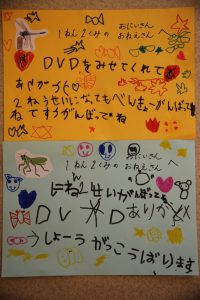 おにいさん
1ねん2くみの おねえさん へ
DVDをみせてくれて
ありがとう
2ねんせいになってもべんきょうがんばって
ねてすうがんばってね
おにいさん
1ねん2くみの おねえさん へ
に ねん 生 いがんばってね
DVD ありが
しょーうがっこうばります